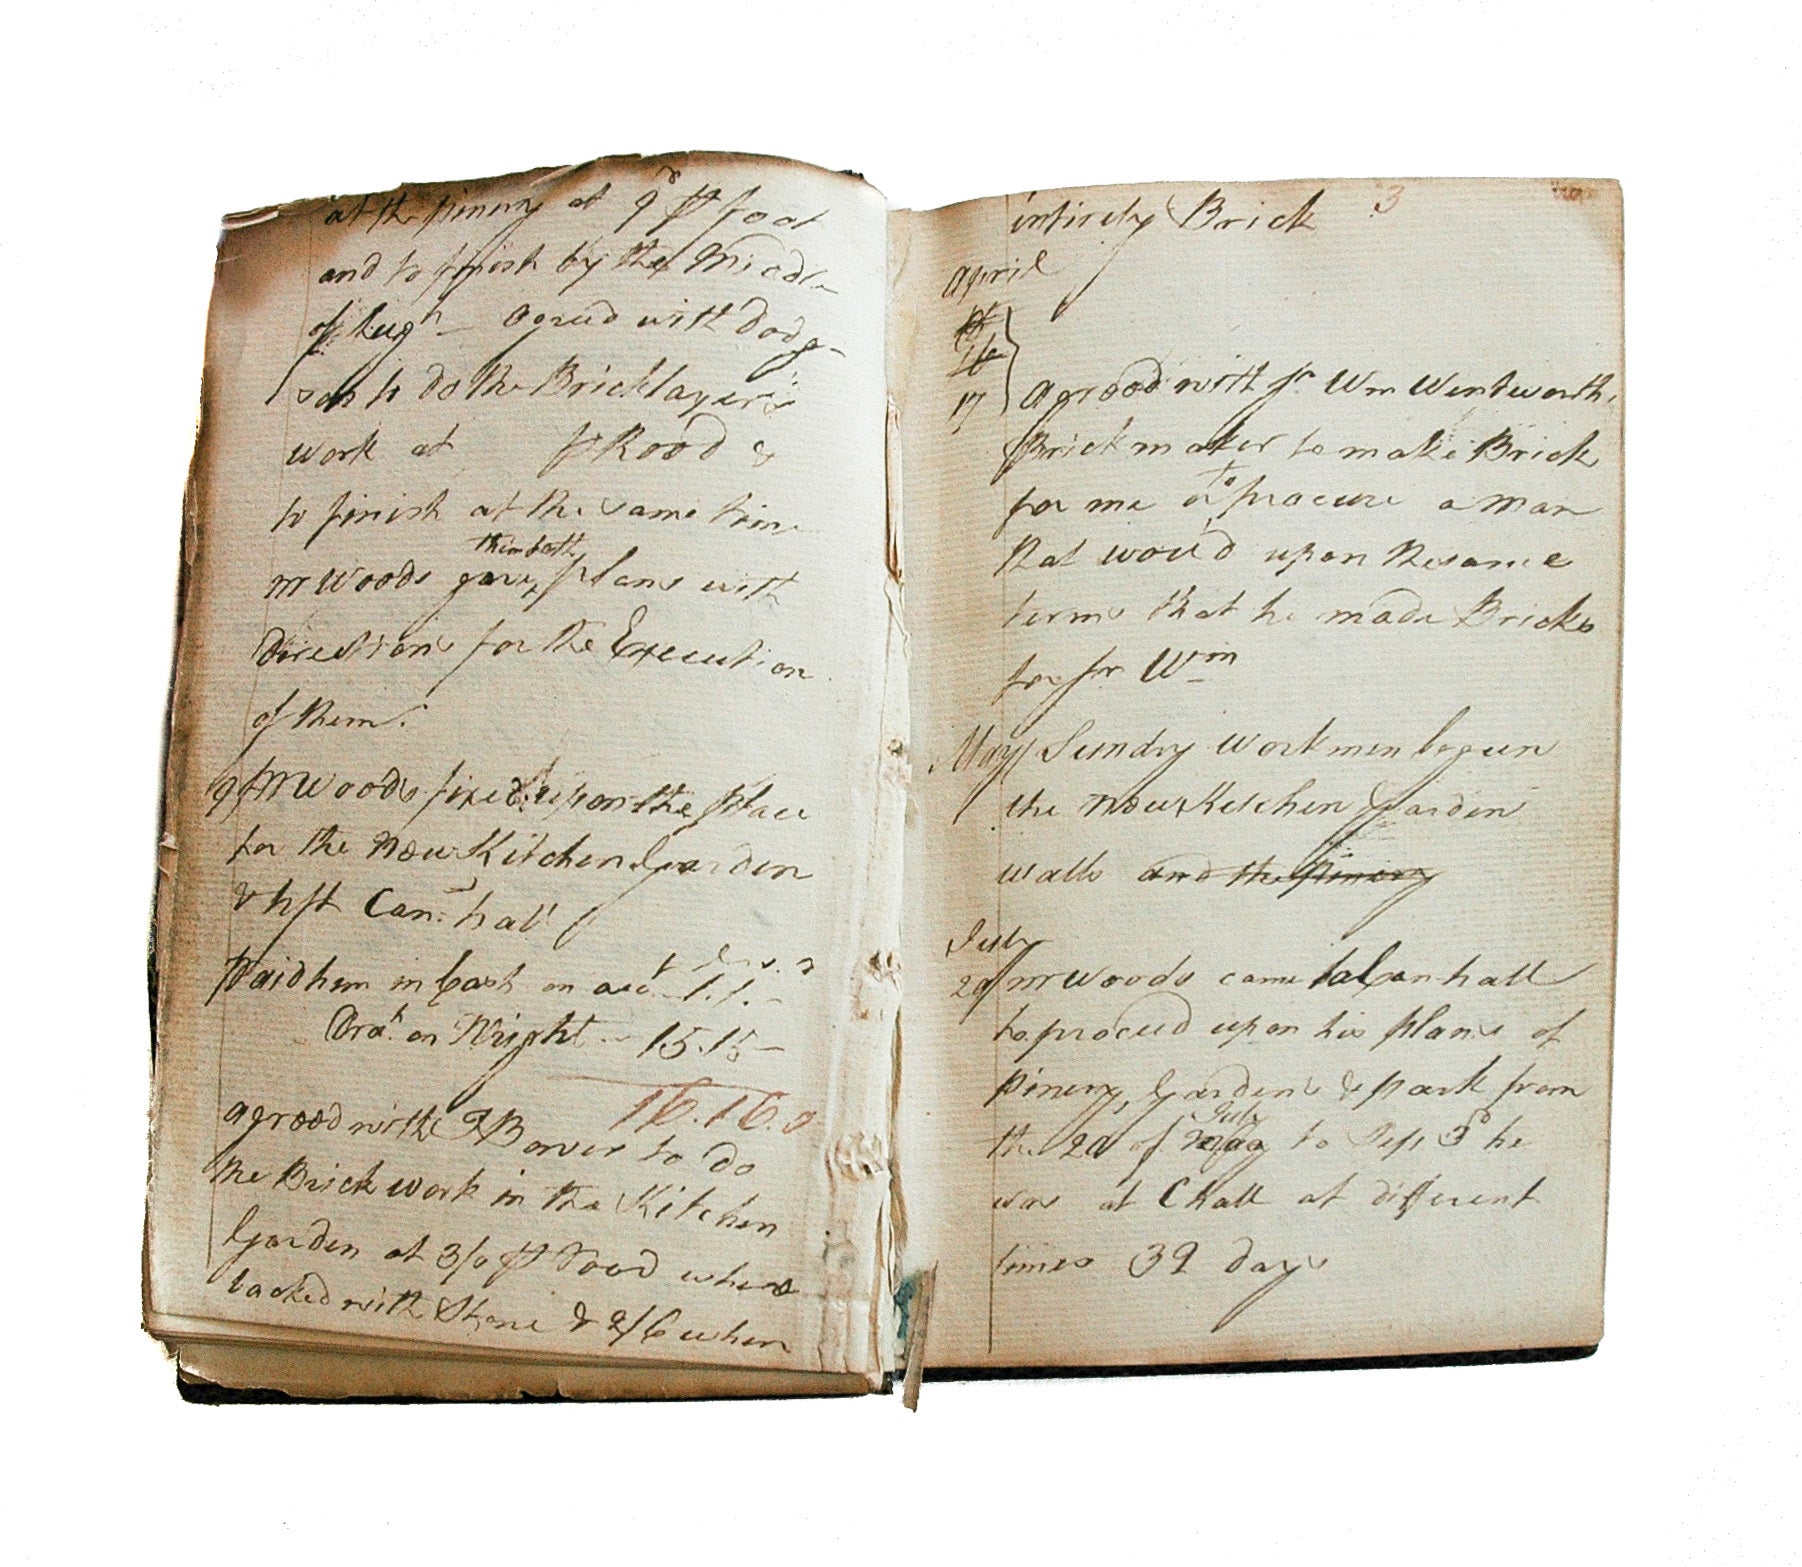 at the pinery at 9d p foot
and to finish by the Middle
of Augt — agreed with Dodg-
son to do the Bricklayer's
work at p Rood &
to finish at the same time
them both
mr Woods gave plans with
Directions for the Execution
of them.
9 Mr Woods fixed upon the place
for the new Kitchen Garden
& left Can: hall
Paid him in Cash on acct 1.1.-
Dra:t on Wright — 15.15 —
16.16.0
agreed with Bower to do
the Brick work in the Kitchen
Garden at 3/0 p Rood where
backed with Stone & 2/6 when
entirely Brick 3
April
16
17 agreed with Sr Wm Wentworth's
Brickmaker to make Brick
for me or to procure a man
that wou'd upon the same
terms that he made Bricks
for Sr Wm
May Sundry Workmen begun
the new Kitchen Garden
walls and the Pinery
July
20 mr Woods came to Canhall
to proceed upon his plans of
Pinery, Gardens & park from
July
the 20 of May to Sep 3d he
was at Chall at different
times 39 days